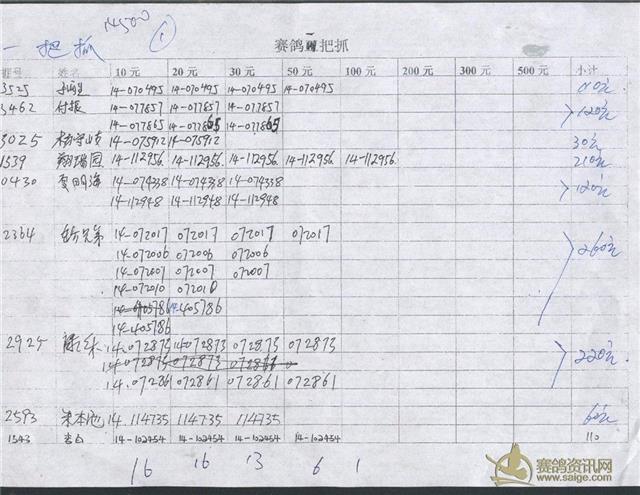 14500 ①
一把抓 赛鸽 把抓
姓名 10元 20元 30元 50元 100元 200元 300元 500元 小计
3525 14-070495 14-070495 14-070495 14-070495
3462 付振 14-077857 14-077857 14-077857 120元
14-077865 14-077865 14-077865
3025 14-075912 14-075912 30元
1539 翔瑞园 14-112956 14-112956 14-112956 14-112956 14-112956 210元
0430 贾明海 14-074338 14-074338 14-074338 120元
14-112948 14-112948 14-112948
2364 岳兄弟 14-072017 072017 072017 072017 260元
14-072006 072006 072006
14-072007 072007 072007
14-072010 072010
14-405786 14-405786
14-405786
2925 14-072873 14-072873 072873 072873 220元
14-072875 072873
14-072861 072861 072861 072861
2593 宋本池 14-114735 114735 114735 60元
1543 14-102454 14-102454 14-102454 14-102454 110
16 16 13 6 1
赛鸽资讯网
www.saige.com